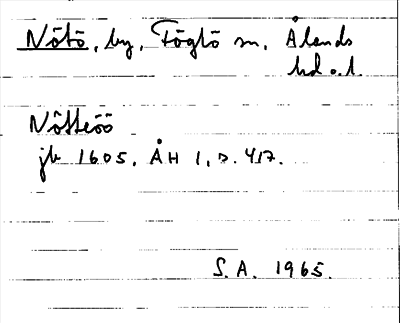 Nötö, by, Föglö sn, Ålands
hd o. l.
Nötteöö
jb 1605. ÅH 1, s. 417.
S.A. 1965.